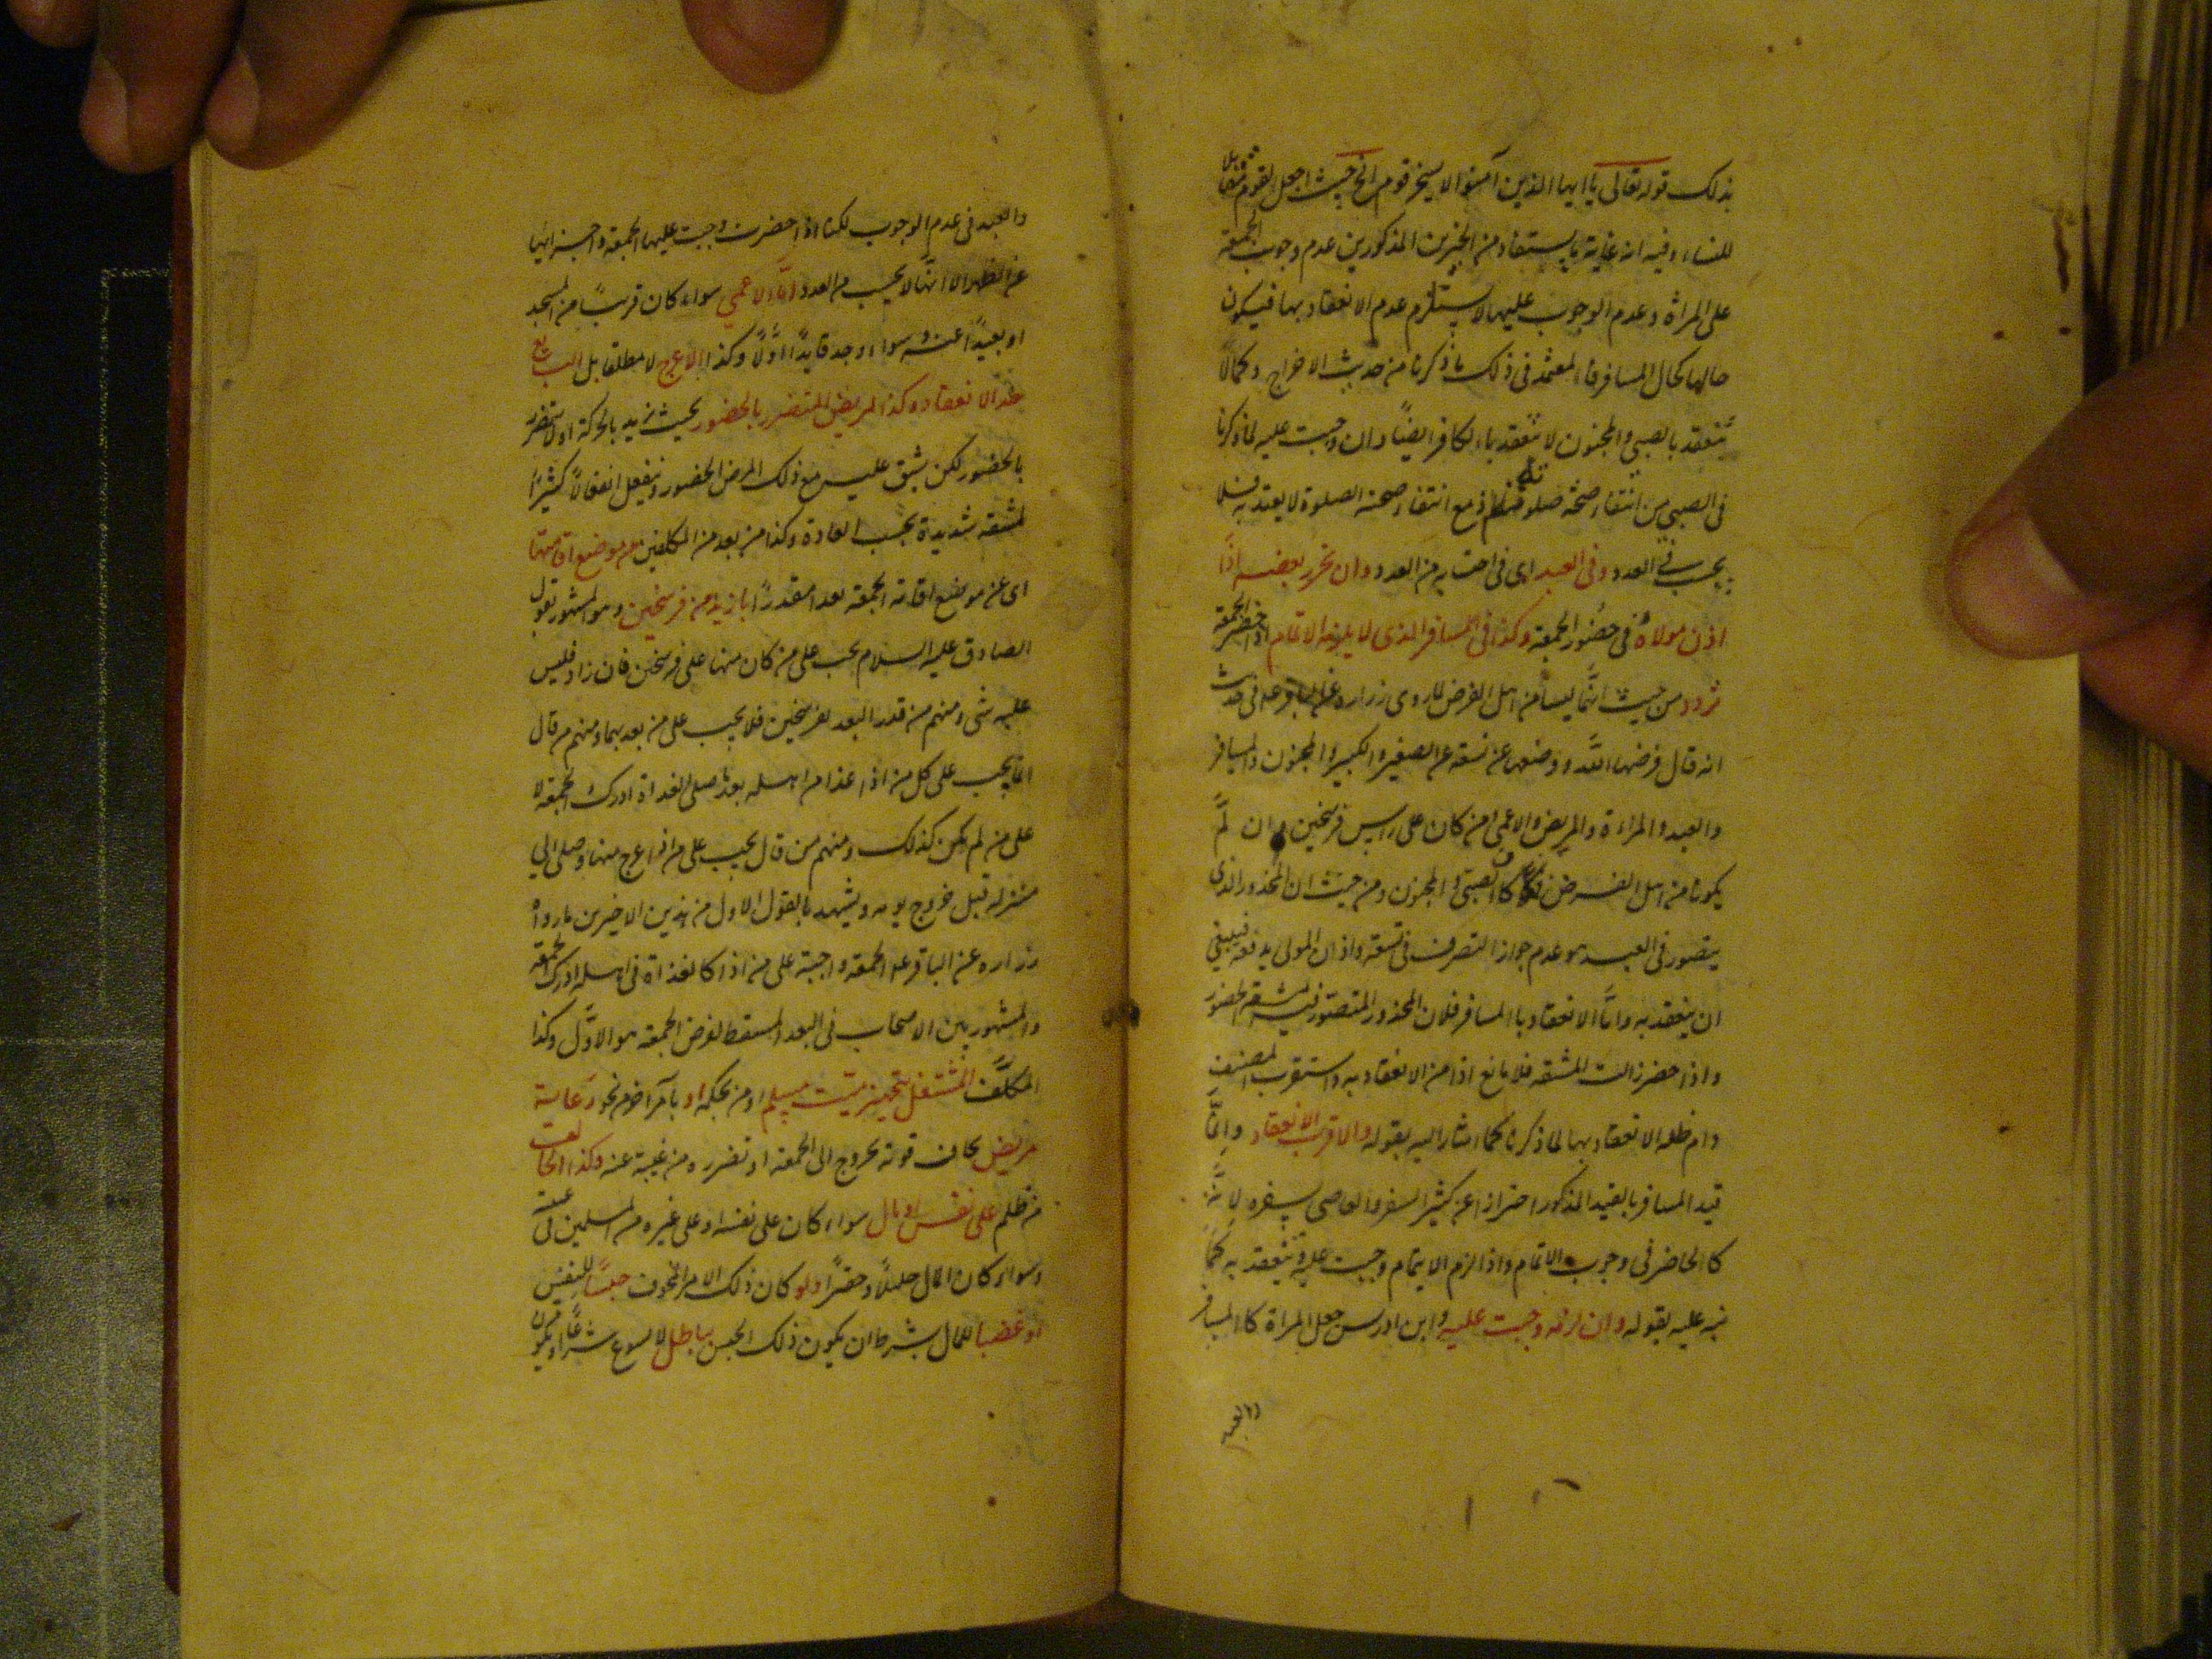 بذلك قوله تعالى يا ايها الذين آمنوا لا يسخر قوم الخ حيث جعل القوم مقابلا
للنساء وفيه ان غاية ما يستفاد من الخبرين المذكورين عدم وجوب الجمعة
على المراة وعدم الوجوب عليها لا يستلزم عدم الانعقاد بها فيكون
حالها كحال المسافر فالمعتمد فى ذلك ما ذكرنا من حديث الاخراج وكما لا
تنعقد بالصبى والمجنون لا تنعقد بالكافر ايضاً وان وجبت عليه لما ذكرنا
فى الصبى من انتفاء صحة صلوته اذ مع انتفاء صحة الصلوة لا يعتد به فلا
يحسب فى العدد وفى العبد اى فى احتسابه من العدد وان تحرر بعضه اذا
اذن مولاه فى حضور الجمعة وكذا فى المسافر الذى لا يلزمه الاتمام اذا حضر الجمعة
تردد من حيث انهما ليسا من اهل الفرض لما روى زراره عن الباقر ع فى حديث
انه قال فرضها الله ووضعها عن تسعة عن الصغير والكبير والمجنون والمسافر
والعبد والمراءة والمريض والاعمى ومن كان على راس فرسخين وان لم
يكونا من اهل الفرض كانا كالصبى والمجنون ومن حيث ان المحذور الذى
يتصور فى العبد هو عدم جواز التصرف فى نفسه واذن المولى يدفعه فينبغى
ان ينعقد به وامّا الانعقاد بالمسافر فلان المحذور المتصور فيه مشقة الحضور
واذا حضر زالت المشقة فلا مانع اذا من الانعقاد به واستقرب المصنف
دام ظله الانعقاد بهما لما ذكرنا كما اشار اليه بقوله والاقرب الانعقاد وانّما
قيد المسافر بالقيد المذكور احترازا عن كثير السفر والعاصى بسفره لانّه
كالحاضر فى وجوب الاتمام واذا لزم الاتمام وجبت عليه وتنعقد به كما
نبه عليه بقوله وان لزمه وجبت عليه وابن ادريس جعل المراة كالمسافر
والعبد
والعبد فى عدم الوجوب لكنها اذا حضرت وجبت عليها الجمعة واجزاتها
عن الظهر الا انها لا تحسب من العدد وامّا الاعمى سواء كان قريباً من المسجد
او بعيداً عنه وسواء وجد قايداً اولاً وكذا الاعرج لا مطلقا بل البالغ
حد الاقعاد وكذا المريض المتضرر بالحضور بحيث يزيد بالحركة اولا يتضرر
بالحضور لكن يشق عليه مع ذلك المرض الحضور وينفعل انفعالاً كثيراً
لمشقة شديدة بحسب العادة وكذا من بعد من المكلفين عن موضع اقامتها
اى عن موضع اقامة الجمعة بعدا مقدراً بازيد من فرسخين وهو المشهور لقول
الصادق عليه السلام تجب على من كان منها على فرسخين فان زاد فليس
عليه شى ومنهم من قدر البعد بفرسخين فلا يجب على من بعد بهما ومنهم من قال
انما يجب على كل من اذا غدا من اهله بعد ما صلى الغداة ادرك الجمعة لا
على من لم يكن كذلك ومنهم من قال يجب على من اذا خرج منها وصل الى
منزله قبل خروج يومه ويشهد بالقول الاول من هذين الاخيرين ما رواه
زراره عن الباقر ع الجمعة واجبة على من اذا صلى الغداة فى اهله ادرك الجمعة
والمشهور بين الاصحاب فى البعد المسقط لفرض الجمعة هو الاوّل وكذا
المكلّف المشتغل بتجهيز ميّت مسلم او من بحكمه او بامر آخر من نحو رعاية
مريض يخاف فوته بخروج الى الجمعة او تضرره من غيبة عنه وكذا الخائف
من ظلم على نفس او مال سواء كان على نفسه او على غيره من المسلمين
وسواء كان المال جليلاً او حقيراً ولو كان ذلك الامر المخوف حبساً للنفس
او غصبا للمال بشرط ان يكون ذلك الحبس بباطل لا يسوغ شرعاً